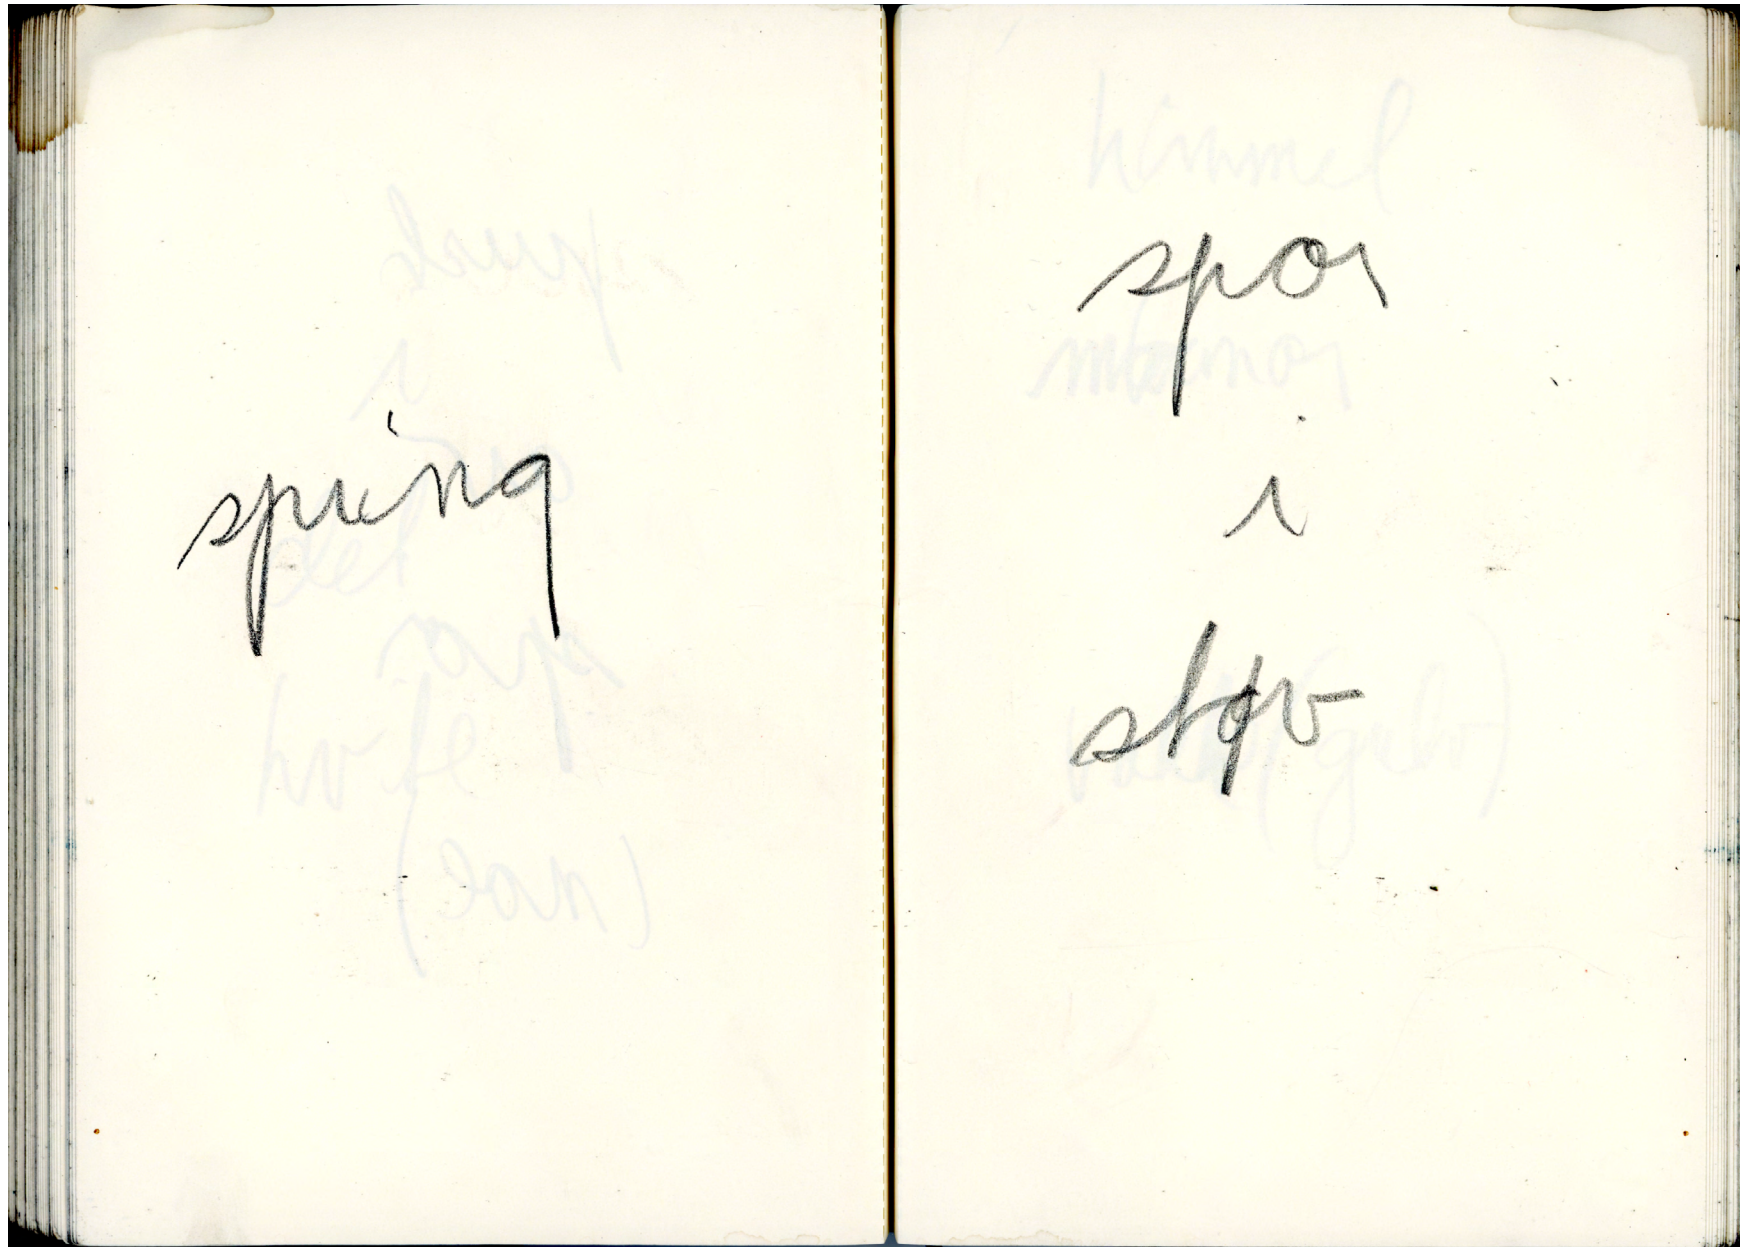 spring
spor
i
støv